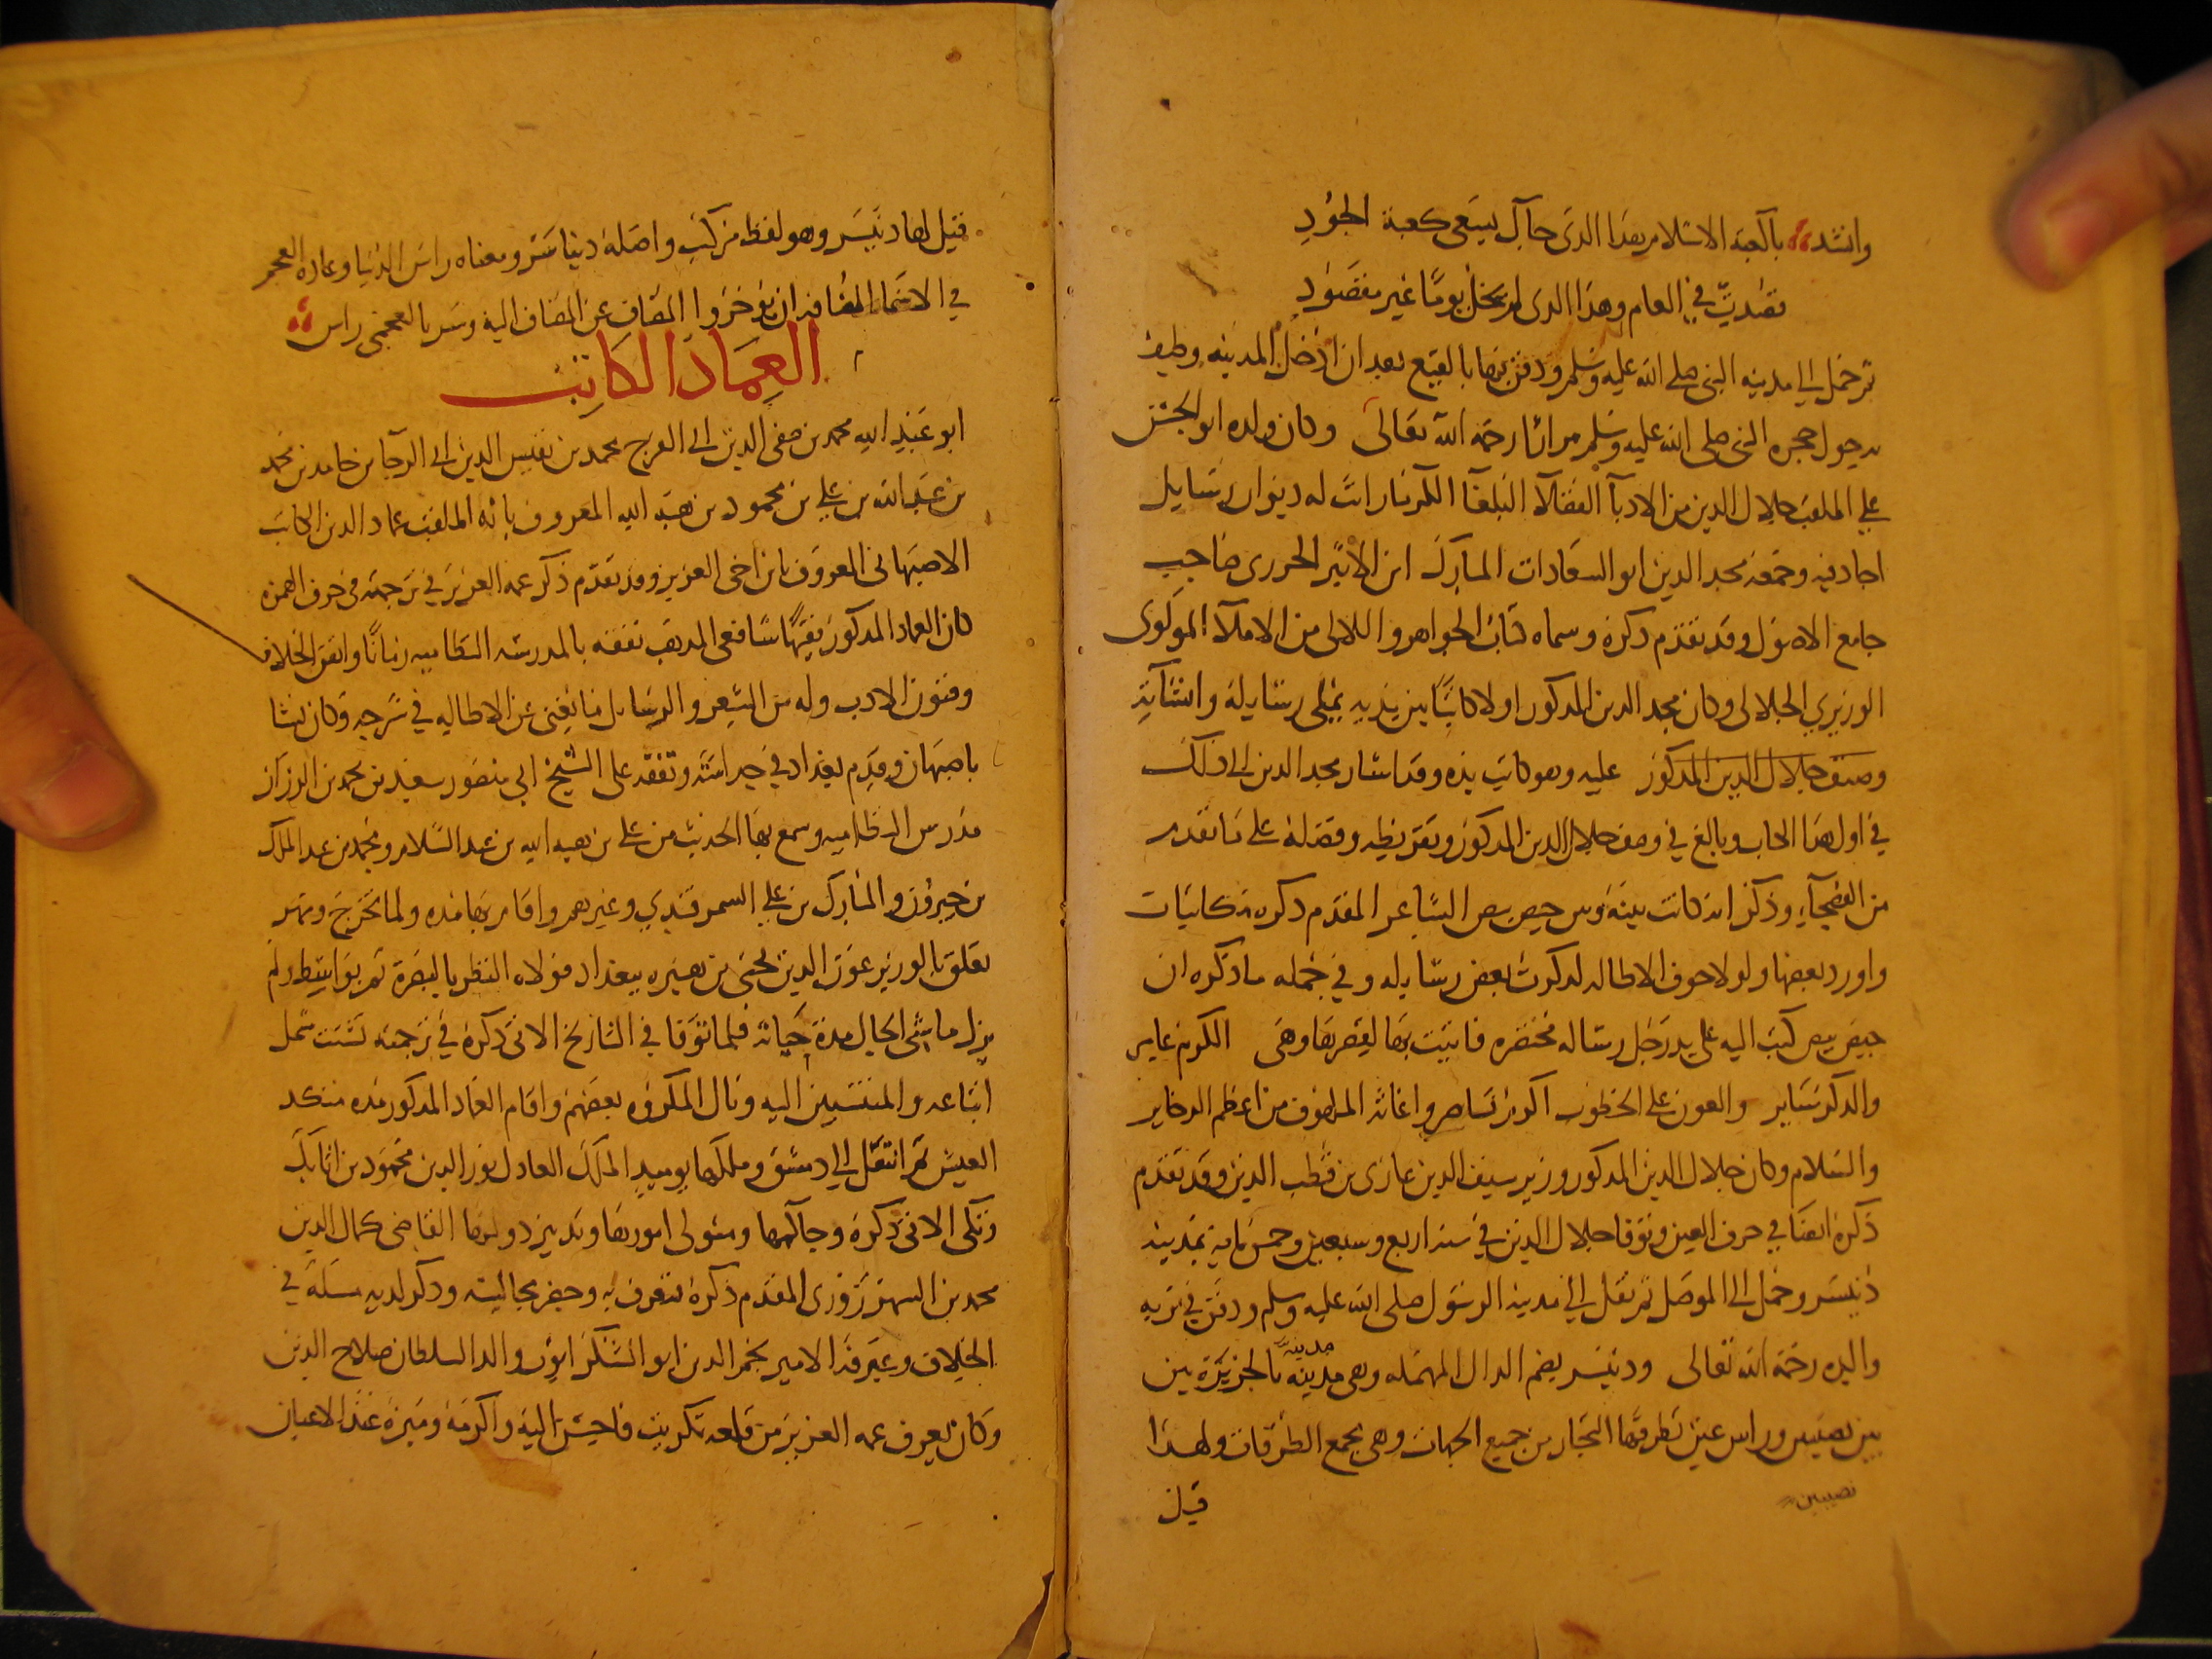 وانشد يا كعبة الاسلام هذا الذي جاآك يسعى كعبة الجود
قصدت في العام وهذا الذي لم يخل يوما غير مقصود
ثم حمل الى مدينه النبي صلى الله عليه وسلم ودفن بها بالبقيع بعد ان ادخل المدينه وطيف
به حول حجره النبي صلى الله عليه وسلم مرارا رحمه الله تعالى وكان ولده ابو الحسن
علي الملقب جلال الدين من الادبآ الفضلآ البلغآ الكرما رايت له ديوان رسايل
اجاد فيه وجمعه مجد الدين ابو السعادات المبارك ابن الاثير الجزرى صاحب
جامع الاصول وقد تقدم ذكره وسماه كتاب الجواهر واللالى من الاملآ المولوى
الوزيري الجلالى وكان مجد الدين المذكور اولا كاتبا بين يديه يملى رسايله وانشآيه
وصف جلال الدين المذكور عليه وهو كاتب يده وقد اشار مجد الدين الى ذلك
في اول هذا الكتاب وبالغ في وصف جلال الدين المذكور وتقريظه وفضله على ما تقدم
من الفصحآء وذكر انه كانت بينه وبين حيص بيص الشاعر المقدم ذكره مكاتبات
واورد بعضها ولولا خوف الاطاله لذكرت بعض رسايله وفي جمله ما ذكره ان
حيص بيص كتب اليه على يد رجل رساله مختصره فاتيت بها لقصرها وهى الكرم غامر
والذكر ساير والعون على الخطوب اكرم ناصر واغاثه الملهوف من اعظم الدخاير
والسلام وكان جلال الدين المذكور وزير سيف الدين غازى بن قطب الدين وقد تقدم
ذكره ايضا في حرف الغين وتوفا جلال الدين في سنه اربع وسبعين وخمس مايه بمدينه
دنيسر وحمل الى الموصل ثم نقل الى مدينه الرسول صلى الله عليه وسلم ودفن في تربه
والده رحمه الله تعالى ودنيسر بضم الدال المهمله وهى مدينه مدينه بالجزيرة بين
بين نصيبين وراس عين تطرقها التجار من جميع الجهات وهى مجمع الطرقات ولهذا
نصيبين
قيل
قيل لها دنيسر وهو لفظ مركب واصله دنيا سر ومعناه راس الدنيا وعاده العجم
في الاسما المضافه ان يوخروا المضاف عن المضاف اليه وسر بالعجمى راس
العماد الكاتب
ابو عبد الله محمد بن صفى الدين ابى الفرج محمد بن نفيس الدين ابى الرجا بن حامد بن محمد
بن عبد الله بن علي بن محمود بن هبه الله المعروف باله الملقب عماد الدين الكاتب
الاصبهانى المعروف بابن اخى العزيز وقد تقدم ذكر عمه العزيز في ترجمته في حرف الهمزه
كان العماد المذكور فقيها شافعى المذهب تفقه بالمدرسه النظاميه زمانا واتقن الخلاف
وفنون الادب وله من الشعر والرسايل ما يغنى عن الاطاله في شرحه وكان نشا
باصبهان وقدم بغداد في حداثته وتفقه على الشيخ ابي منصور سعيد بن محمد بن الرزاز
مدرس النظاميه وسمع بها الحديث من على بن هبه الله بن عبد السلام ومحمد بن عبد الملك
بن خيرون والمبارك بن علي السمرقندي وغيرهم واقام بها مده ولما تخرج ومهر
تعلق بالوزير عون الدين يحيى بن هبيره ببغداد فولاه النظر بالبصرة ثم بواسط ولم
يزل ماشى الحال مدة حياته فلما توفا في التاريخ الاتى ذكره في ترجمته تشتت شمل
اتباعه والمنتسبين اليه ونال المكروه بعضهم واقام العماد المذكور مده منكد
العيش ثم انتقل الى دمشق وملكها يوميذ الملك العادل نور الدين محمود بن اتابك
زنكى الاتى ذكره وحاكمها ومتولى امورها وتدبير دولتها القاضى كمال الدين
محمد بن الشهرزورى المقدم ذكره فتعرف به وحضر مجالسه وذكر لديه مسله في
الخلاف وعرفه الامير نجم الدين ابو الشكر ايوب والد السلطان صلاح الدين
وكان يعرف عمه العزيز من قلعه تكريت فاحسن اليه واكرمه وميزه عند الاعيان